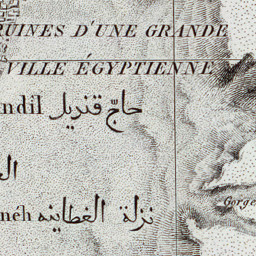 RUINES D'UNE GRANDE
VILLE ÉGYPTIENNE
ndil حاجّ قنديل
néh نزلة الغطاينه
Gorge